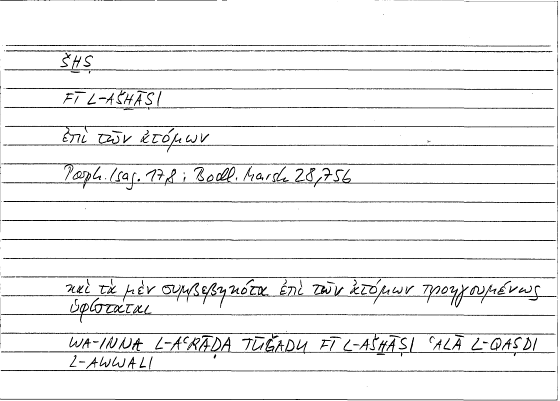 ŠḪṢ
FĪ L-AŠḪĀṢI
ἐπὶ τῶν ἀτόμων
Porph. Isag. 17,8 ; Bodl. Marsh 28,756
καὶ τὰ μὲν συμβεβηκότα ἐπὶ τῶν ἀτόμων προηγουμένως
ὑφίσταται
WA-INNA L-AʿRĀḌA TŪǦADU FĪ L-AŠḪĀṢI ʿALĀ L-QAṢDI
L-AWWALI